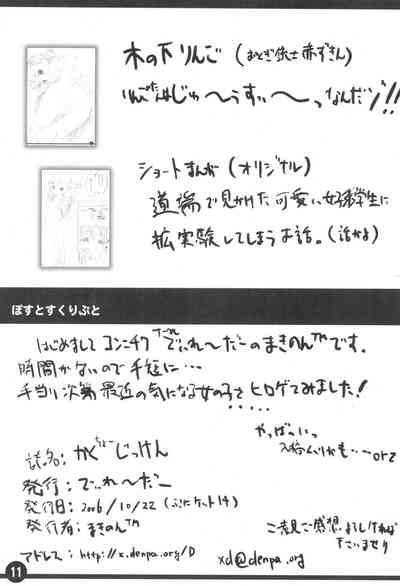 木の下りんご（おとぎ銃士赤ずきん）
りんごたんはじゅ〜うすぃ〜っなんだゾ!!
ショートまんが（オリジナル）
道場で見かけた可愛い女子学生に
拡実験してしまうお話。（話かよ）
ぽすとすくりぷと
はじめまして コンニチワ でぃれ〜だーのまきのん™です。
時間がないので手短に…
手当り次第最近の気になる女の子をヒロゲてみました!
やっばいっ
orz
誌名: かくちょーじっけん
発行: でぃれーだー
発行日: 2006/10/22（ぷにケット14）
発行者: まきのん™
ご意見ご感想よろしければ
下さいませ
アドレス: http://x.denpa.org/D xd@denpa.org
11